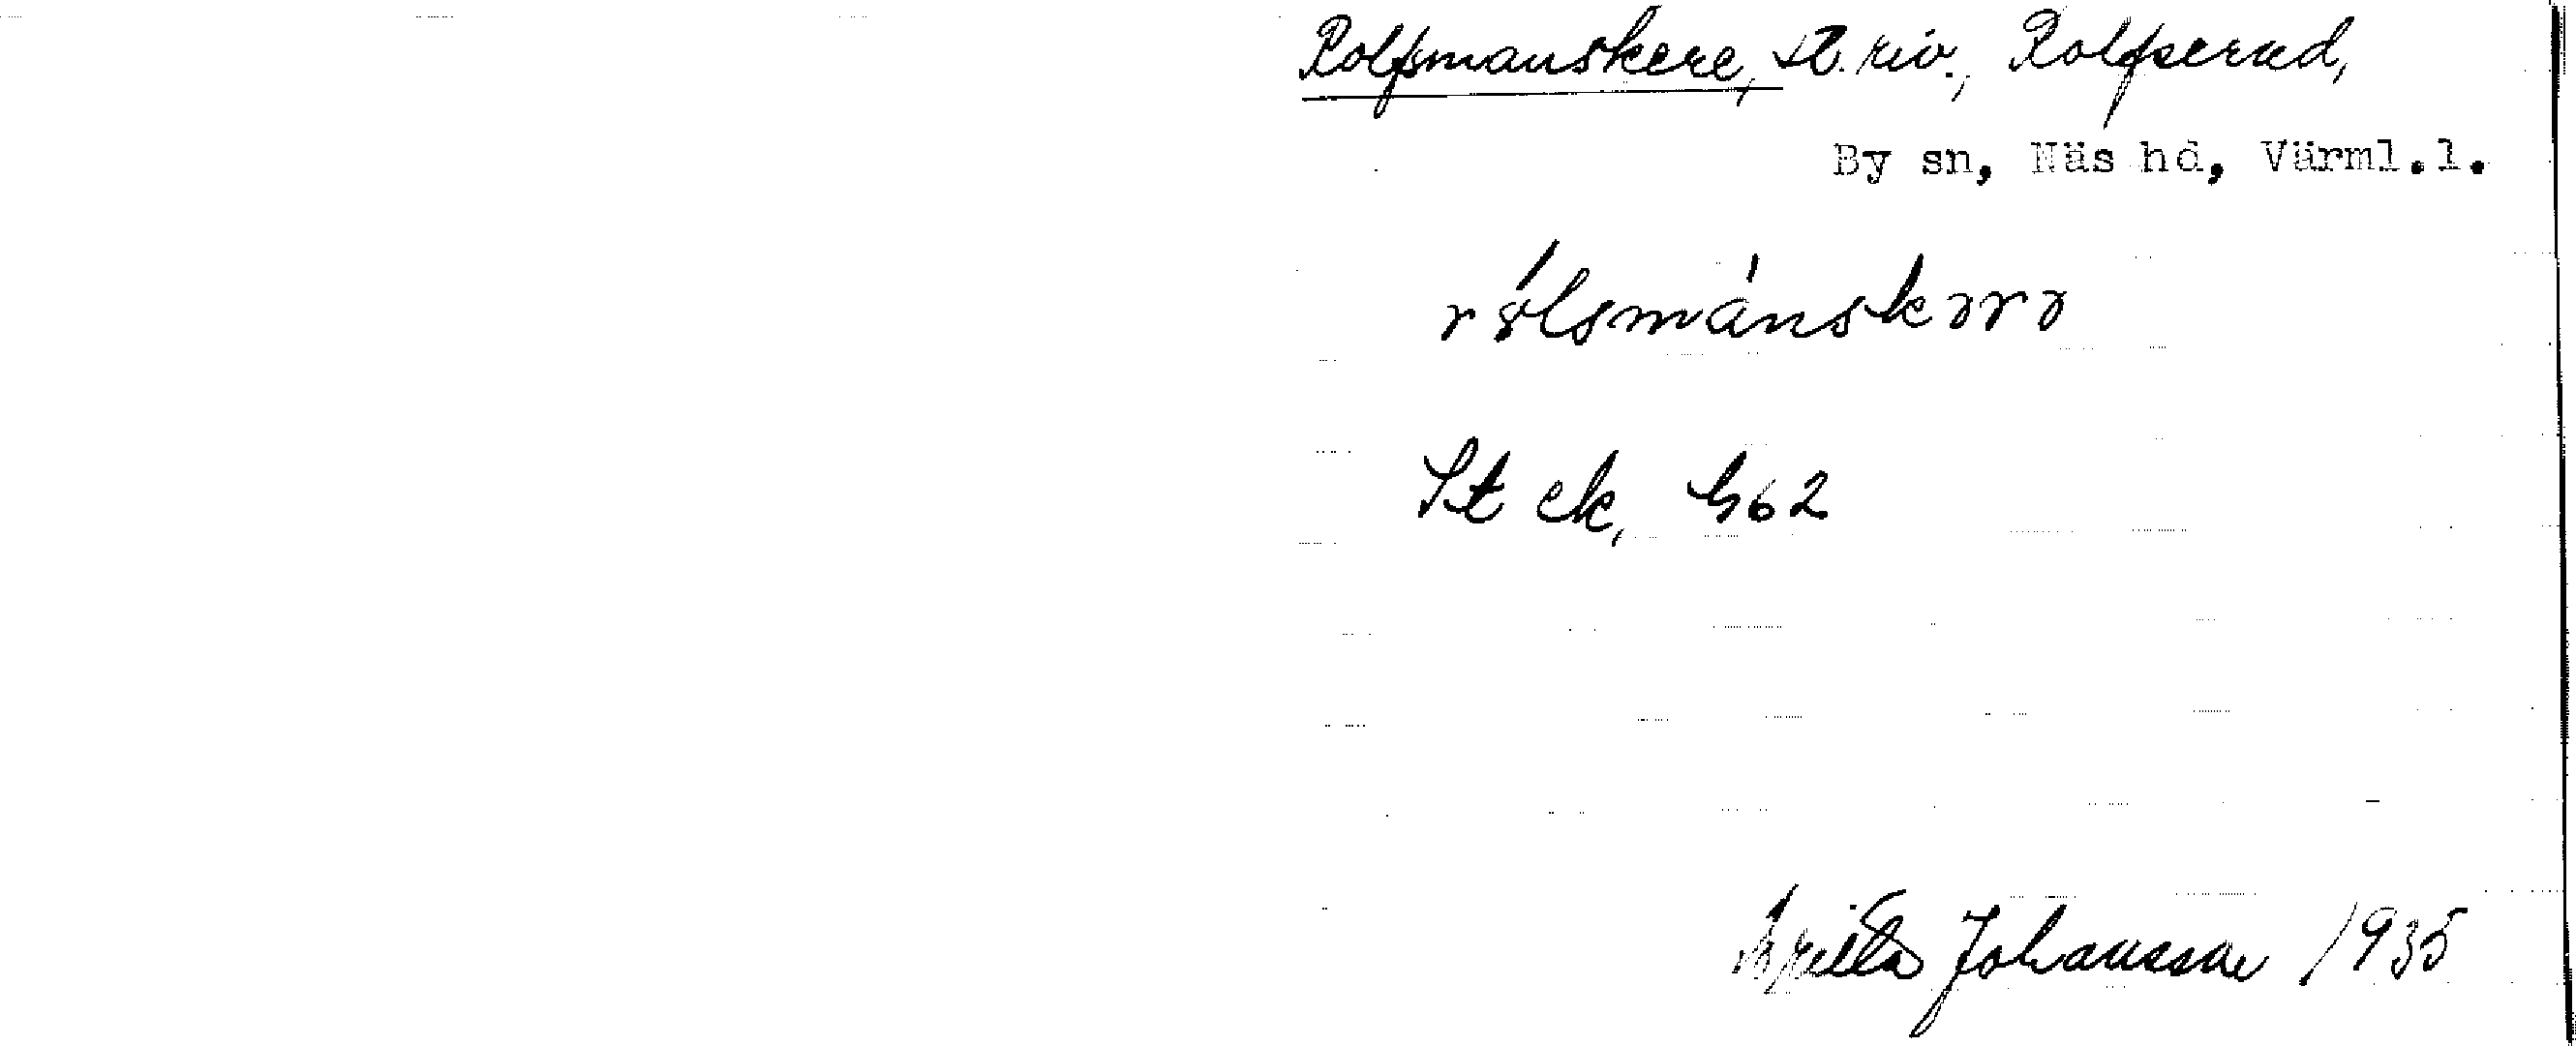 Rolfsmanskere, st. riv., Rolfserud,
By sn, Näs hd, Värml.l.
St ek, h62
Britta Johansson 1935